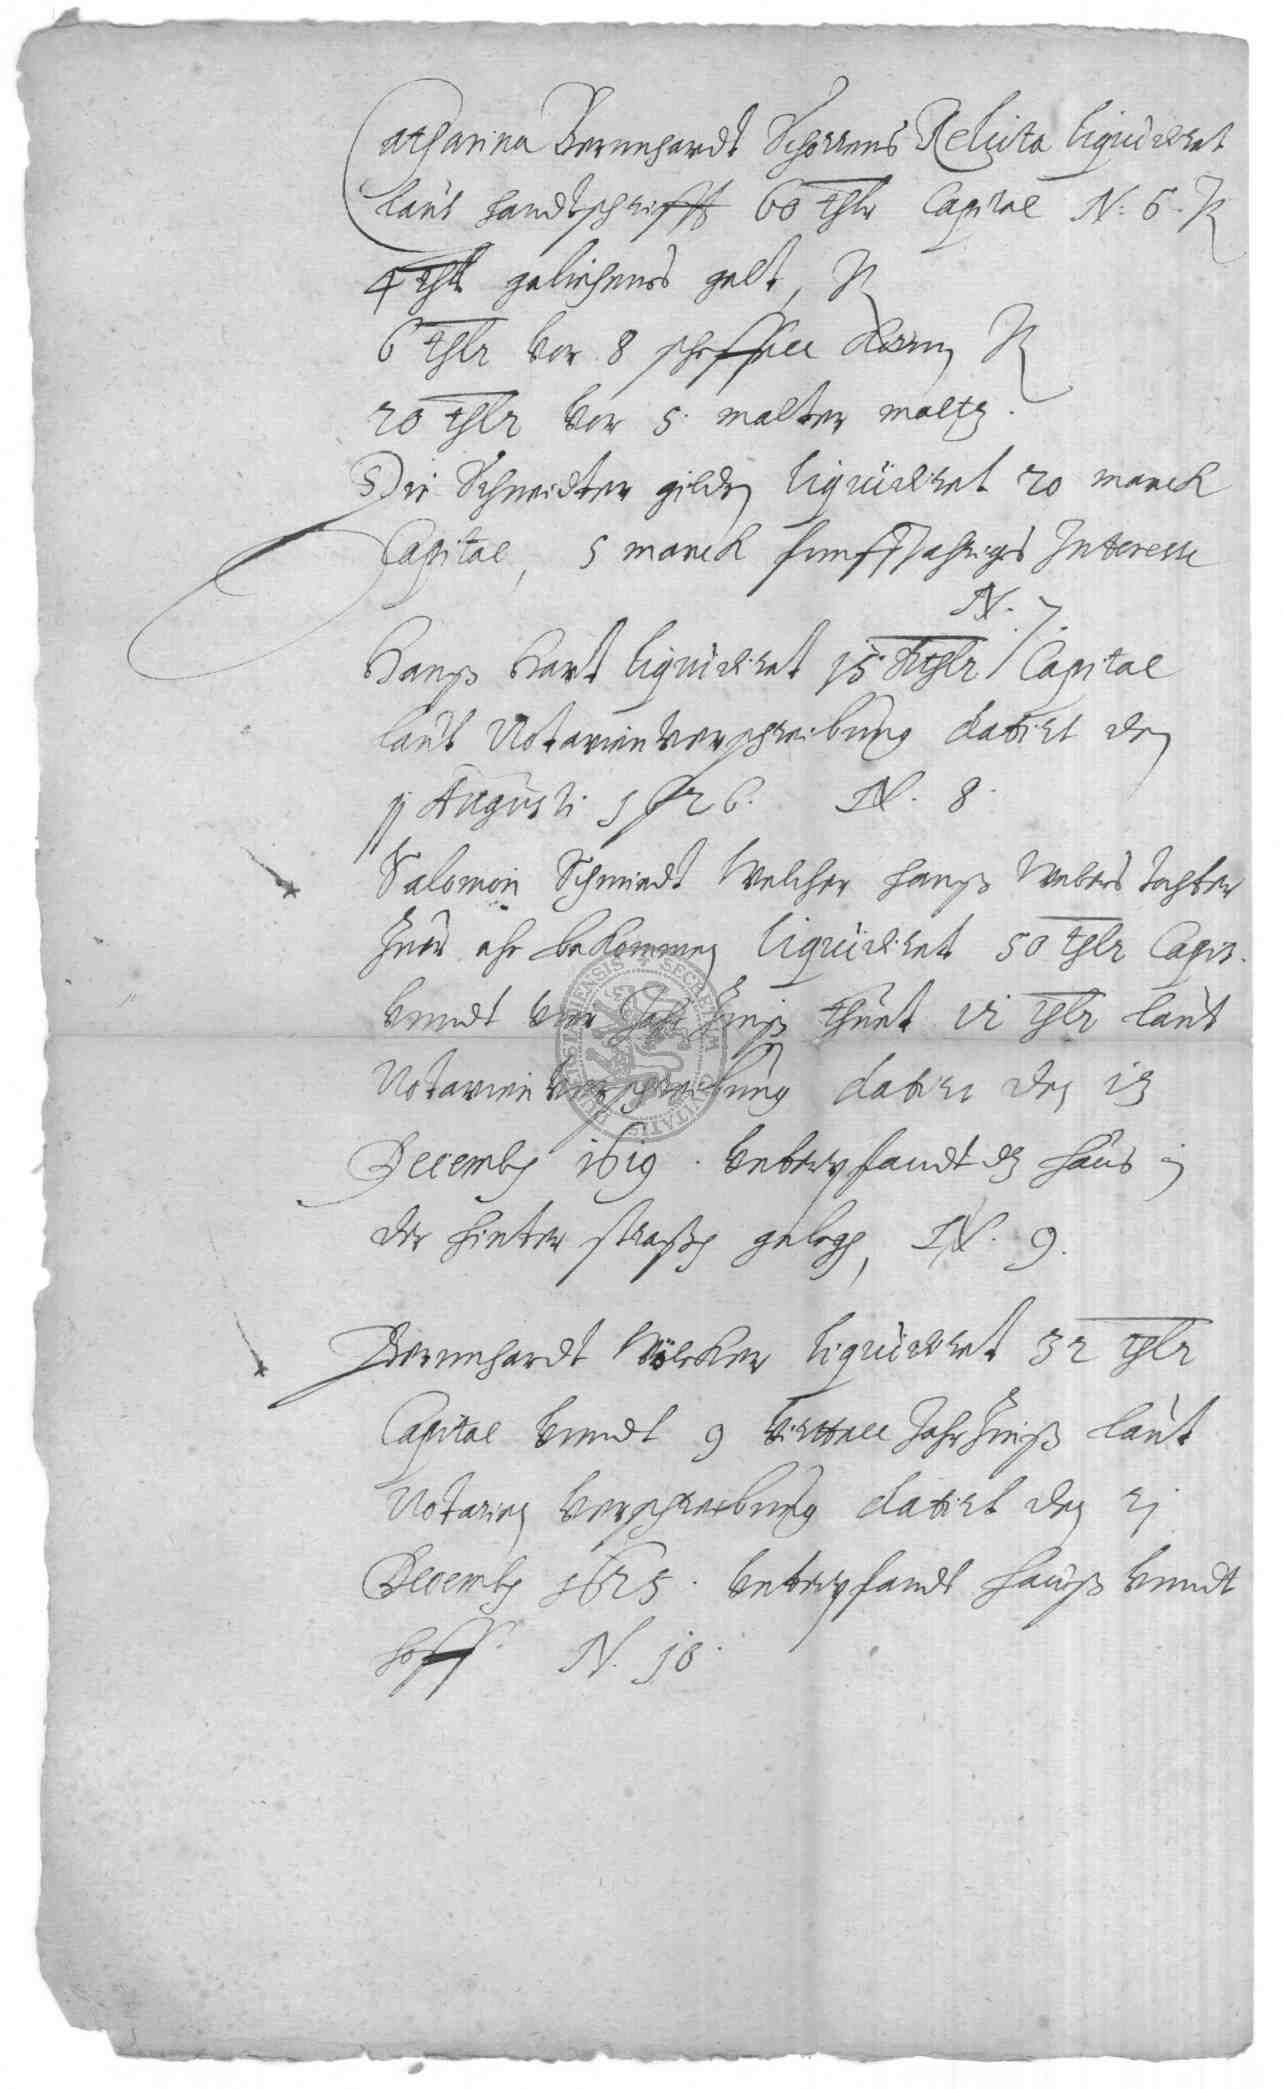 Catharina Bernnhardt Schorrens Relicta liquidiret
laut handtschrifft 60 thlr Capital N. 6. R
4 thlr geliehenes gelt, R
6 thlr vor 8 scheffell Korn R
20 thlr vor 5 malter maltz.
Die Schneidter gilden liquidiret 20 marck
Capital, 5 marck funffjahriges Interesse
N. 7.
Hanß Hart liquidiret 15 Rthlr Capital
laut Notarien verschreibung datirt den
11 Augusti 1626. N. 8.
Salomon Schmiedt Welcher Hanß Webers tochter
Zuer ehe bekommen liquidiret 50 thlr Capit.
vnndt vier Jahr Zinß thuet 12 thlr laut
Notarien verschreibung datirt den 13
Decemb 1619. vnterpfandt dz haus in
der hinter straßen gelegen, N. 9.
Bernnhardt Völcker liquidiret 32 thlr
Capital vnndt 9 virttell Jahr Zinß laut
Notarien verschreibung datirt den 21
Decemb 1625. vnterpfandt hauß vnndt
hoff. N. 10.
SECRETUM CIVITATIS